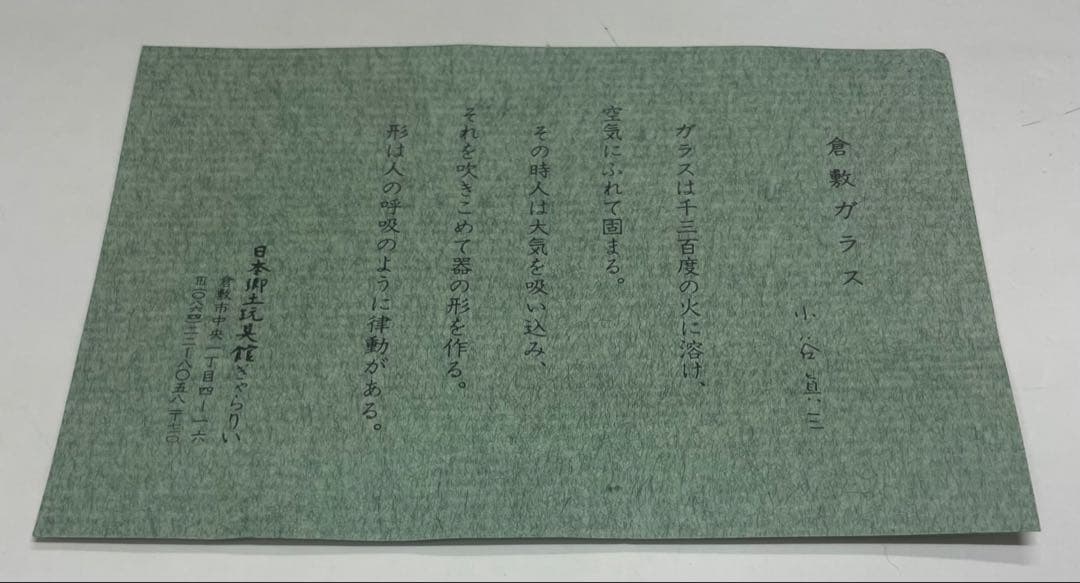 倉敷ガラス
小谷眞三
ガラスは千三百度の火に溶け、
空気にふれて固まる。
その時人は大気を吸い込み、
それを吹きこめて器の形を作る。
形は人の呼吸のように律動がある。
日本郷土玩具館ぎゃらりい
倉敷市中央一丁目四ー一六
〇八六四二二ー八〇五八〒七一〇